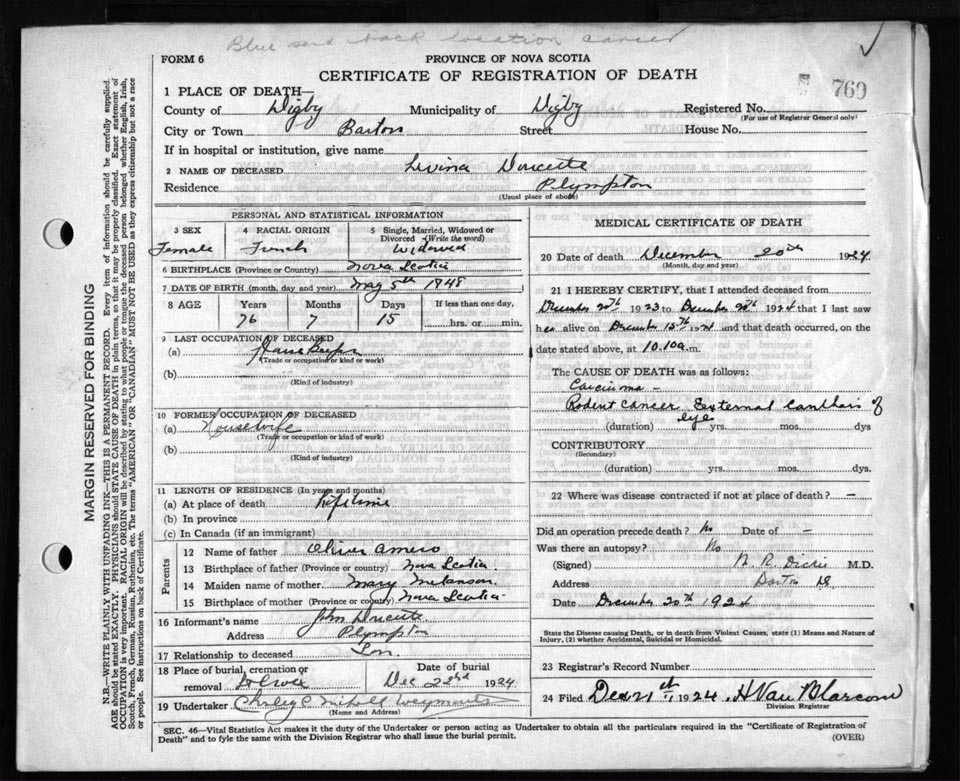 Blue send back location cancer
FORM 6
PROVINCE OF NOVA SCOTIA
CERTIFICATE OF REGISTRATION OF DEATH
769
1 PLACE OF DEATH—
County of Digby Municipality of Digby Registered No.
(For use of Registrar General only)
City or Town Barton Street House No.
If in hospital or institution, give name
2 NAME OF DECEASED Levina Doucette
Residence Plympton
(Usual place of abode)
PERSONAL AND STATISTICAL INFORMATION
3 SEX 4 RACIAL ORIGIN 5 Single, Married, Widowed or Divorced (Write the word)
Female French Widowed
6 BIRTHPLACE (Province or Country) Nova Scotia
7 DATE OF BIRTH (month, day and year) May 5th 1848
8 AGE Years Months Days If less than one day,
76 7 15 hrs. or min.
9 LAST OCCUPATION OF DECEASED
(a) House Keeper
(Trade or occupation or kind or work)
(b)
(Kind of industry)
10 FORMER OCCUPATION OF DECEASED
(a) Housewife
(Trade or occupation or kind of work)
(b)
(Kind of industry)
11 LENGTH OF RESIDENCE (In years and months)
(a) At place of death Lifetime
(b) In province
(c) In Canada (if an immigrant)
Parents
12 Name of father Oliver Amero
13 Birthplace of father (Province or country) Nova Scotia
14 Maiden name of mother Mary Melanson
15 Birthplace of mother (Province or country) Nova Scotia
16 Informant's name John Doucette
Address Plympton
17 Relationship to deceased Son
18 Place of burial, cremation or removal Date of burial
Dec 22nd 1924
19 Undertaker Weymouth
(Name and Address)
MEDICAL CERTIFICATE OF DEATH
20 Date of death December 20th 1924
(Month, day and year)
21 I HEREBY CERTIFY, that I attended deceased from
December 20th 1923 to December 20th 1924 that I last saw
her alive on December 15th 1924 and that death occurred, on the
date stated above, at 10.10 a.m.
The CAUSE OF DEATH was as follows:
Carcinoma -
Rodent Cancer External Canthais of
eye
(duration) yrs. mos. dys
CONTRIBUTORY
(Secondary)
(duration) yrs. mos. dys.
22 Where was disease contracted if not at place of death? —
Did an operation precede death? No Date of —
Was there an autopsy? No
(Signed) Dickie M.D.
Address
Date December 20th 1924
State the Disease causing Death, or in death from Violent Causes, state (1) Means and Nature of
Injury, (2) whether Accidental, Suicidal or Homicidal.
23 Registrar's Record Number
24 Filed Dec 21st 1924. H Van Blarcom
Division Registrar
SEC. 46—Vital Statistics Act makes it the duty of the Undertaker or person acting as Undertaker to obtain all the particulars required in the "Certificate of Registration of
Death" and to fyle the same with the Division Registrar who shall issue the burial permit.
(OVER)
MARGIN RESERVED FOR BINDING
N.B.—WRITE PLAINLY WITH UNFADING INK—THIS IS A PERMANENT RECORD. Every item of information should be carefully supplied.
AGE should be stated EXACTLY. PHYSICIANS should STATE CAUSE OF DEATH in plain terms, so that it may be properly classified. Exact statement of
OCCUPATION is very important. RACIAL ORIGIN will be described by stating to what people or tongue the deceased person belonged whether English, Irish,
Scotch, French, German, Russian, Ruthenian, etc. The terms "AMERICAN" or "CANADIAN" MUST NOT BE USED as they express citizenship but not a race
or people. See instructions on back of Certificate.